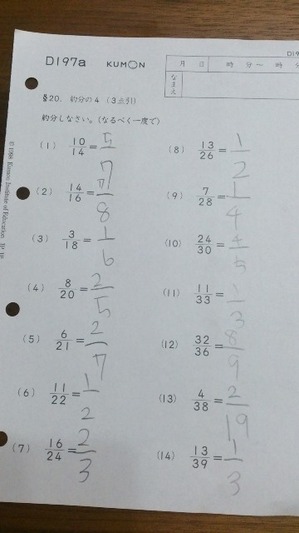 D197a KUMON
D19
月 日 時 分〜 時
なまえ
§20. 約分の4 (3点引)
約分しなさい。(なるべく一度で)
(1) 10/14 = 5/7
(2) 14/16 = 7/8
(3) 3/18 = 1/6
(4) 8/20 = 2/5
(5) 6/21 = 2/7
(6) 11/22 = 1/2
(7) 16/24 = 2/3
(8) 13/26 = 1/2
(9) 7/28 = 1/4
(10) 24/30 = 4/5
(11) 11/33 = 1/3
(12) 32/36 = 8/9
(13) 4/38 = 2/19
(14) 13/39 = 1/3
© 1988 Kumon Institute of Education